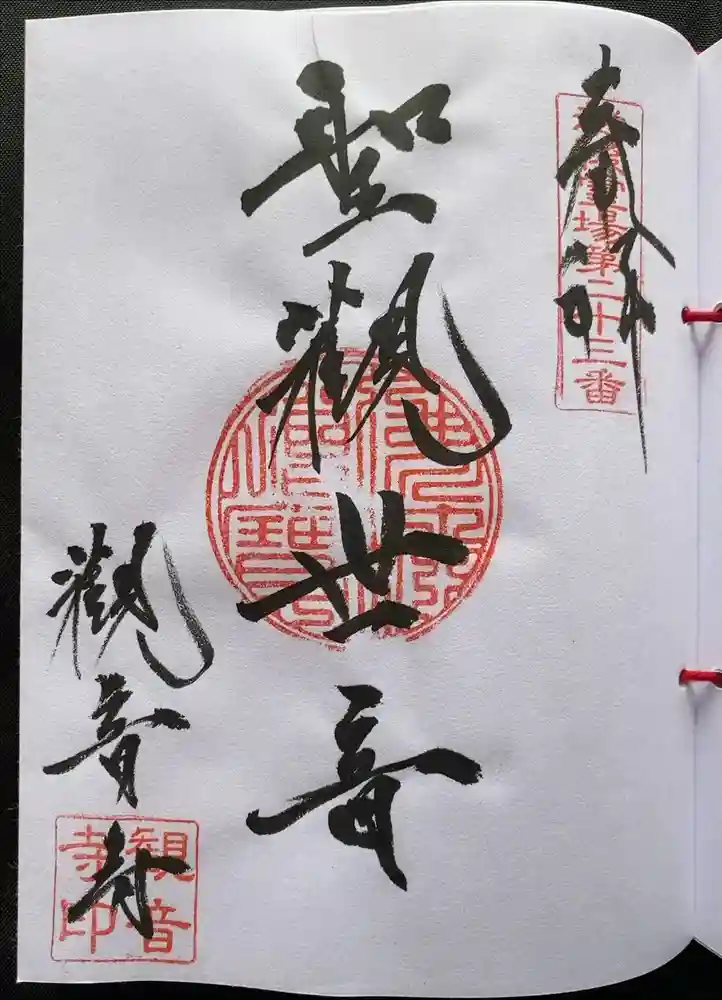 奉拝
霊場第二十三番
聖観世音
観音寺
観音寺印